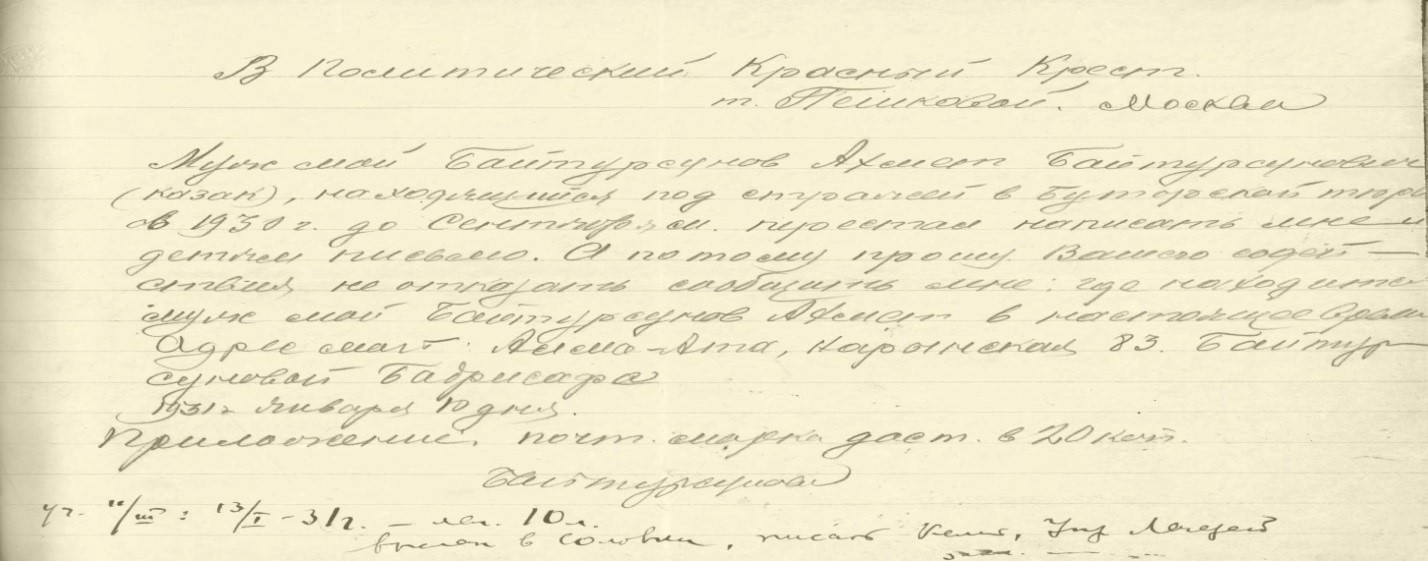 В Политический Красный Крест.
т. Пешковой. Москва
Муж мой Байтурсунов Ахмет Байтурсунович
(казак), находящийся под стражей в Бутырской тюр
в 1930 г. до Сентября м. перестал написать мне и
детям письмо. А потому прошу Вашего содей-
ствия не отказать сообщить мне: где находится
муж мой Байтурсунов Ахмет в настоящее время
Адрес мой: Алма-Ата, Нарынская 83. Байтур
суновой Бадрисафа
1931 г января 10 дня.
Приложение. почт. марка дост. в 20 коп.
Байтурсунова
11/III : 13/I - 31 г. – лаг. 10 л.
выслан в Соловки, писать Кемь, Упр Лагерей